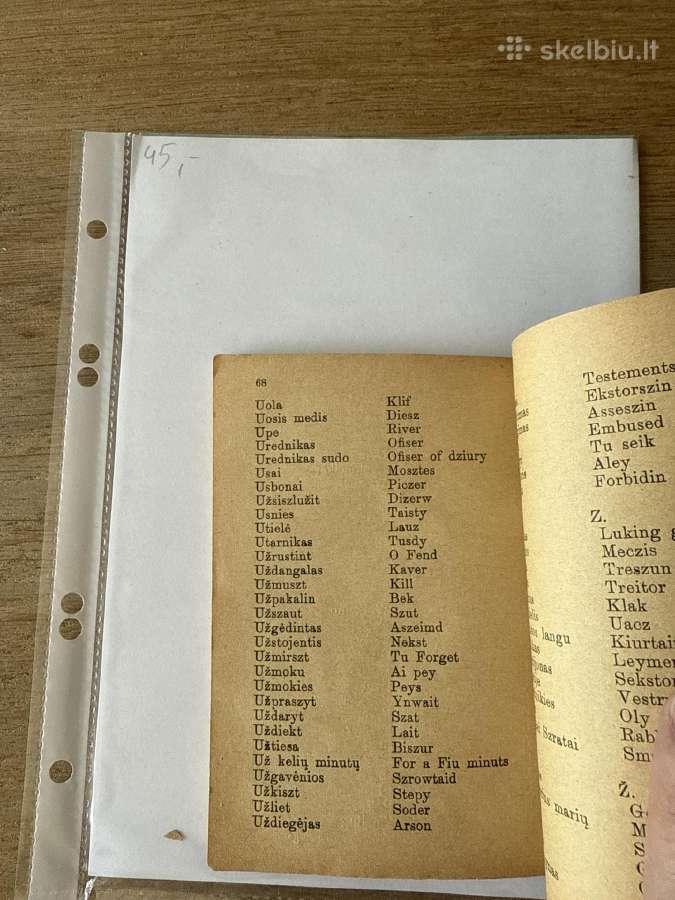 skelbiu.lt
45,-
68
Uola Klif
Uosis medis Diesz
Upe River
Urednikas Ofiser
Urednikas sudo Ofiser of dziury
Usai Mosztes
Usbonai Piczer
Užsiszlužit Dizerw
Usnies Taisty
Utielė Lauz
Utarnikas Tusdy
Užrustint O Fend
Uždangalas Kaver
Užmuszt Kill
Užpakalin Bek
Užszaut Szut
Užgėdintas Aszeimd
Užstojentis Nekst
Užmirszt Tu Forget
Užmoku Ai pey
Užmokies Peys
Užpraszyt Ynwait
Uždaryt Szat
Uždiekt Lait
Užtiesa Biszur
Už kelių minutų For a Fiu minuts
Užgavėnios Szrowtaid
Užkiszt Stepy
Užliet Soder
Uždiegėjas Arson
Testements
Ekstorszin
Asseszin
Embused
Tu seik
Aley
Forbidin
Z.
Luking
Meczis
Treszun
Treitor
Klak
Uacz
langu
Szratai
marių
Oly
Ž.